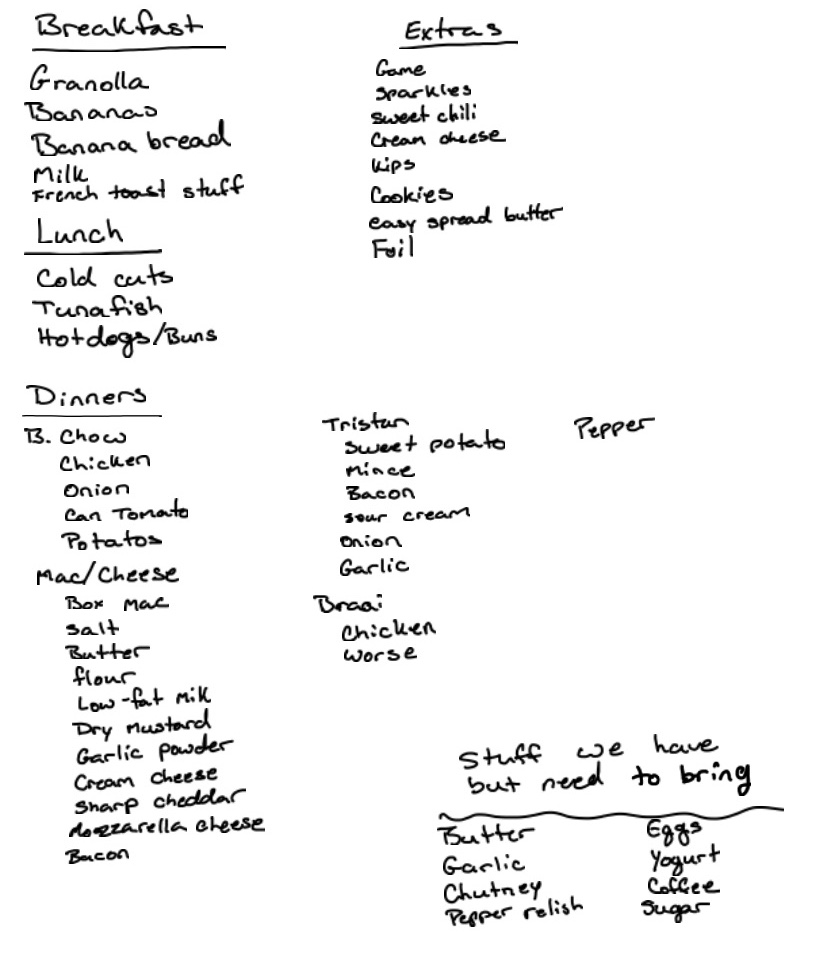 Breakfast
Granolla
Bananas
Banana bread
Milk
French toast stuff
Lunch
Cold cuts
Tunafish
Hotdogs/Buns
Extras
Game
Sparkles
Sweet chili
Cream cheese
Kips
Cookies
easy spread butter
Foil
Dinners
B. Chow
Chicken
Onion
Can Tomato
Potatos
Mac/Cheese
Box mac
Salt
Butter
flour
Low-fat milk
Dry Mustard
Garlic powder
Cream cheese
Sharp cheddar
Mozzarella cheese
Bacon
Tristan
Sweet potato
Mince
Bacon
sour cream
onion
Garlic
Braai
Chicken
Worse
Pepper
Stuff we have
but need to bring
Butter
Garlic
Chutney
Pepper relish
Eggs
Yogurt
Coffee
Sugar